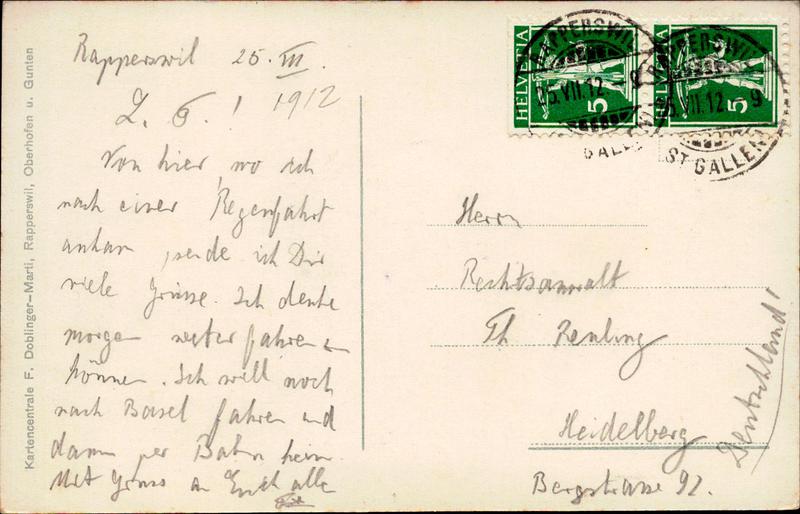 Rapperswil 25. VII.
1912
L. G.!
Von hier, wo ich
nach einer Regenfahrt
ankam, sende ich Dir
viele Grüsse. Ich denke
morgen weiterfahren zu
können. Ich will noch
nach Basel fahren und
dann per Bahn heim.
Mit Gruss an Euch alle
Herrn
Rechtsanwalt
Th
Heidelberg
Bergstrasse 92.
Deutschland!
HELVETIA
5
HELVETIA
5
RAPPERSWIL
25.VII.12
GALLEN
RAPPERSWIL
VII.12 9
ST GALLEN
Kartencentrale F. Doblinger-Marti, Rapperswil, Oberhofen u. Gunten